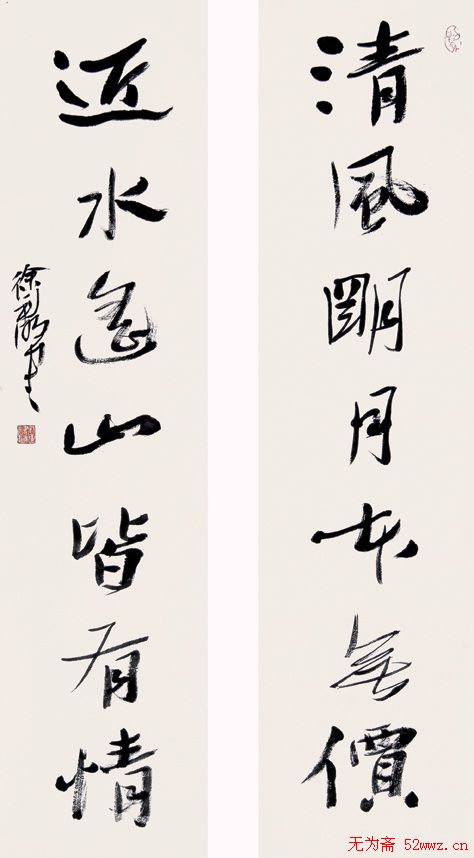 清風朙月本無價
近水遙山皆有情
徐利明
无为斋 52wwz.cn